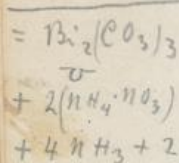 = Bi2(CO3)3
+ 2(NH4·NO3)
+ 4NH3 + 2